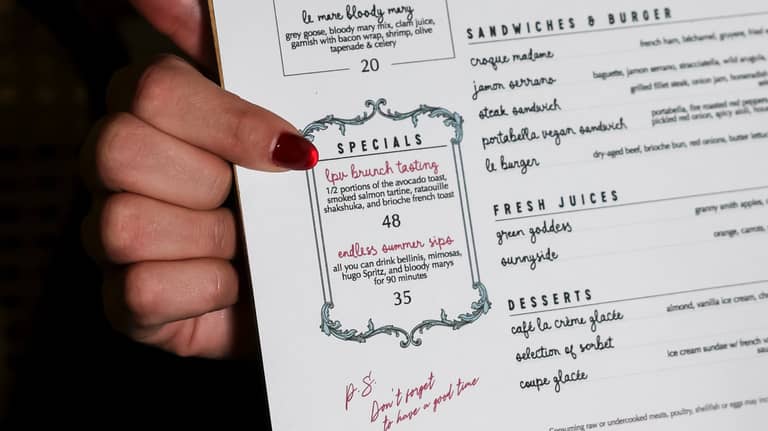 le mare bloody mary
grey goose, bloody mary mix, clam juice,
garnish with bacon wrap, shrimp, olive
tapenade & celery
20
SPECIALS
lpv brunch tasting
1/2 portions of the avocado toast,
smoked salmon tartine, rataouille
shakshuka, and brioche french toast
48
endless summer sips
all you can drink bellinis, mimosas,
hugo Spritz, and bloody marys
for 90 minutes
35
p.s.
Don't forget
to have a good time
SANDWICHES & BURGER
croque madame
french ham, béchamel, gruyere, fried
jamon serrano
baguette, jamon serrano, stracciatella, wild
steak sandwich
grilled fillet steak, onion jam,
portabella vegan sandwich
portabella, fire roasted red
pickled red onion, spicy aioli,
le burger
dry-aged beef, brioche bun, red onions, butter
FRESH JUICES
green goddess
granny smith apples,
sunnyside
orange, carrots,
DESSERTS
café la crème glacée
almond, vanilla ice cream,
selection of sorbet
coupe glacée
ice cream sundae w/ french
Consuming raw or undercooked meats, poultry, shellfish or eggs may